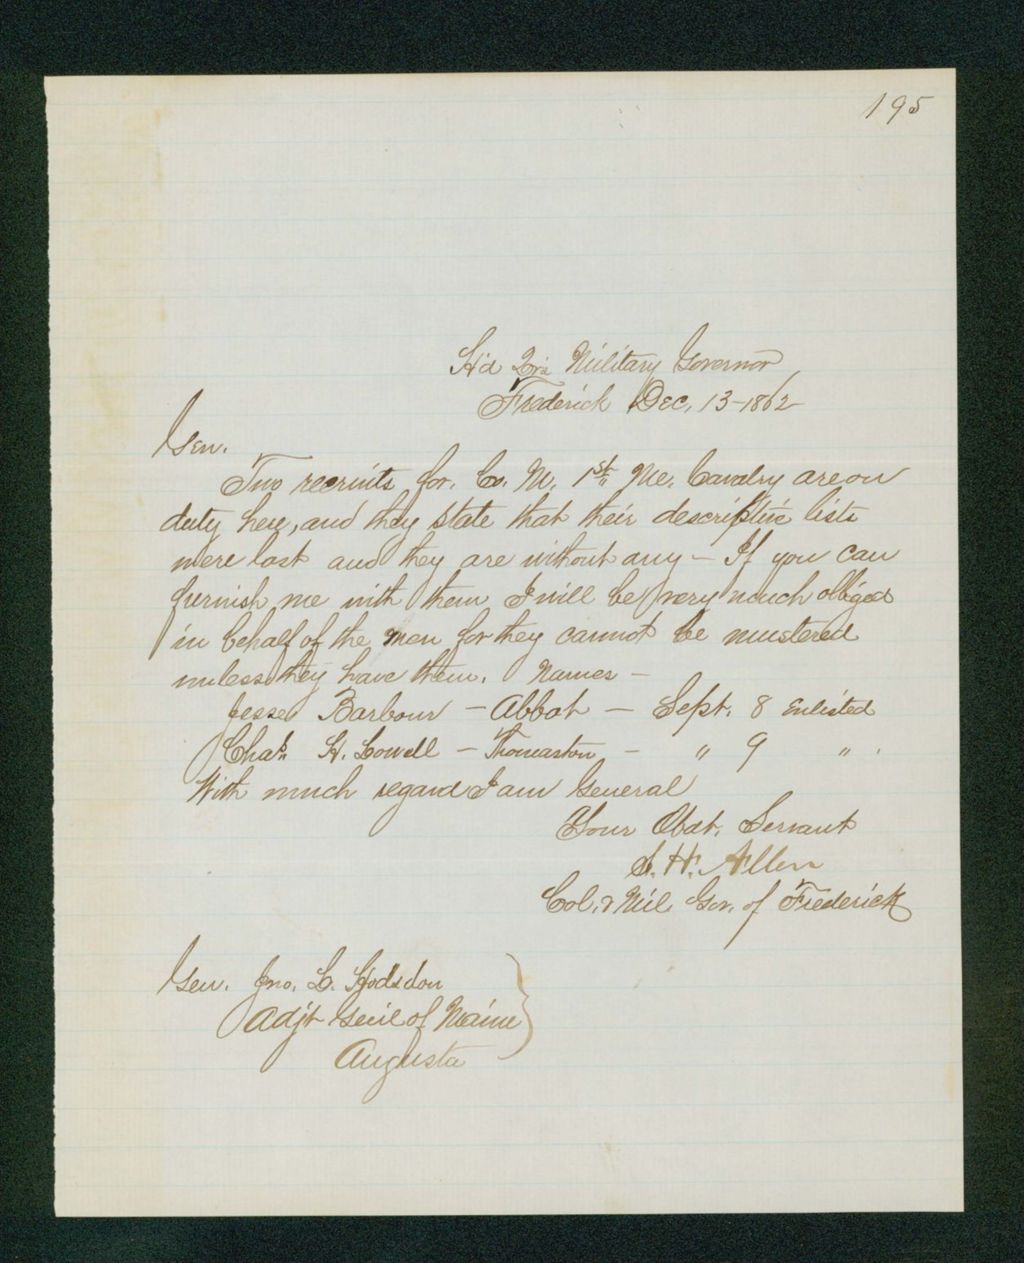 195
Hd Qrs Military Governor
Frederick Dec. 13-1862
Gen.
Two recruits for. Co. M. 1st Me. Cavalry are on
duty here, and they state that their descriptive lists
were lost and they are without any - If you can
furnish me with them I will be very much obliged
in behalf of the men for they cannot be mustered
unless they have them. Names -
Jesse Barbour - Abbot - Sept. 8 Enlisted
Chas. H. Lowell - Thomaston - " 9 " .
With much regard I am General
Your Obdt. Servant
S. H. Allen
Col. & Mil. Gov. of Frederick
Gen. Jno. L. Hodsdon
Adjt Genl of Maine
Augusta